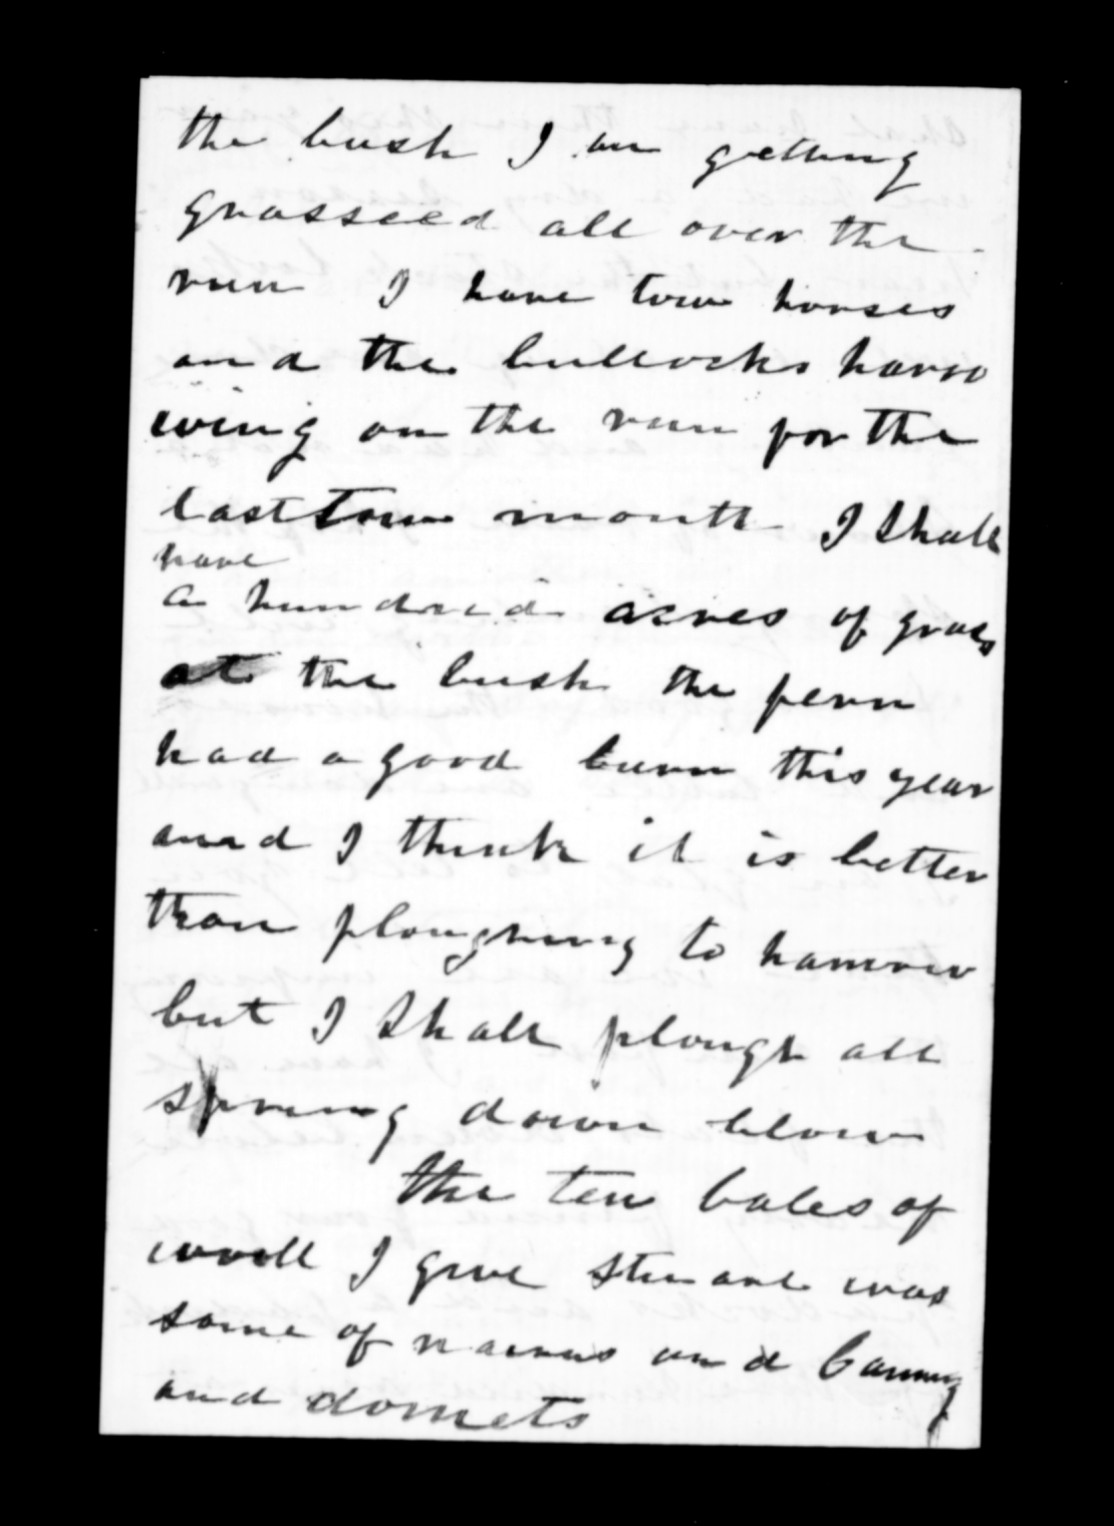 the bush I am getting
grasseed all over the
run I have tow horses
and the bullocks harro
wing on the run for the
last tow month I Shall
have
a hundred acres of grass
at the bush the fern
had a good burn this year
and I think it is better
than ploughing to harrow
but I Shall plough all
spring down blow
the ten bales of
wooll I give Stuart was
some of and
and domets